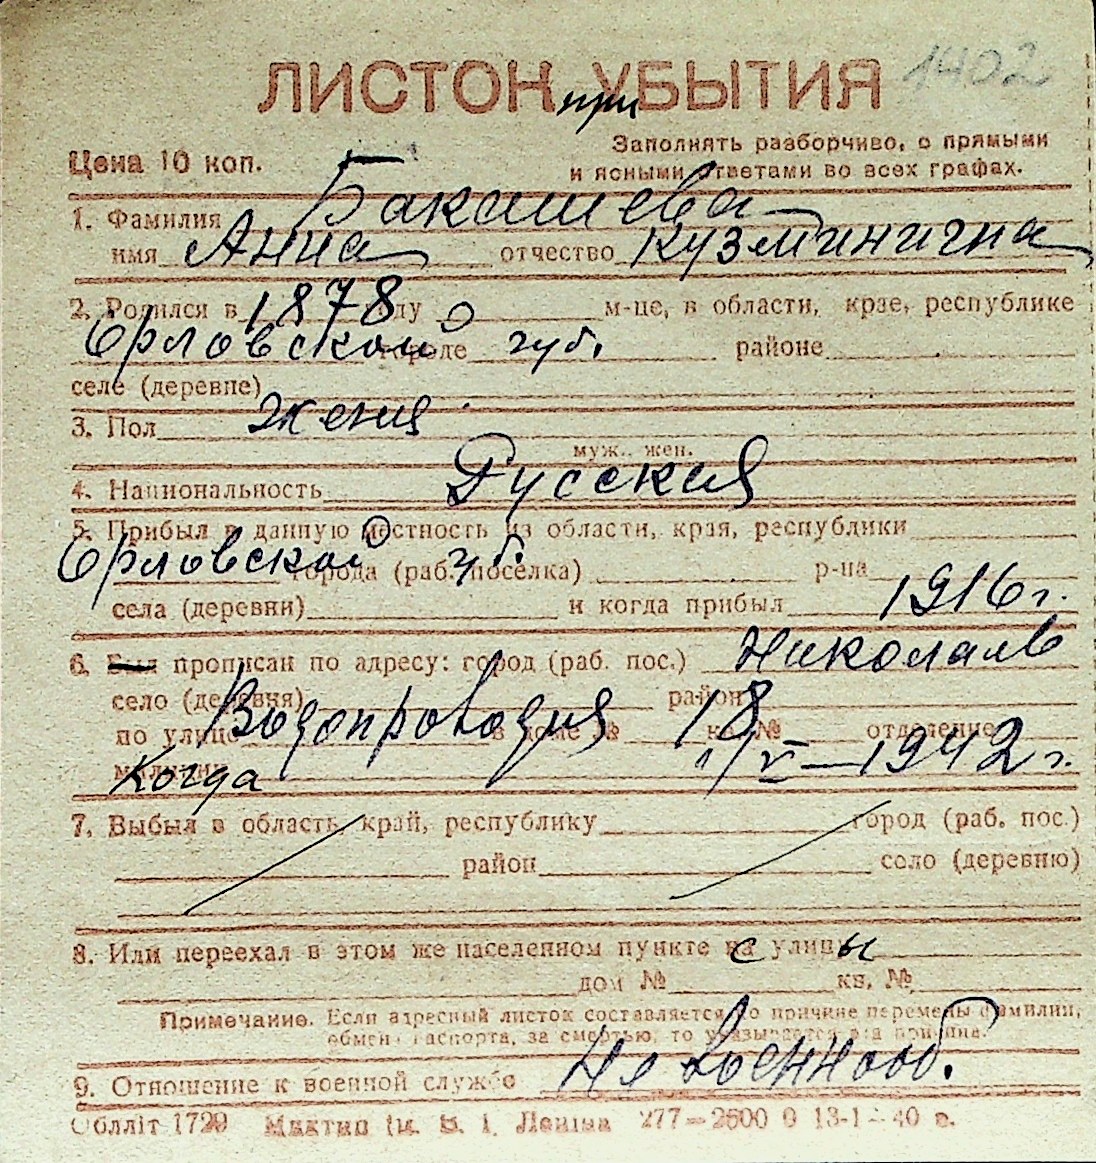 1402
ЛИСТОК УБЫТИЯ
при
Заполнять разборчиво, с прямыми
Цена 10 коп.
и ясными ответами во всех графах.
1. Фамилия Бакашева
имя Анна отчество Кузминична
2. Родился в 1878 году 0 м-це, в области, крае, республике
Орловской городе губ. районе
селе (деревне)
3. Пол женск
муж., жен.
4. Национальность Русская
5. Прибыл в данную местность из области, края, республики
Орловской города (раб. поселка) губ. р-на
села (деревни) и когда прибыл 1916 г.
6. Был прописан по адресу: город (раб. пос.) Николаев
село (деревня) район
по улице Водопроводня в доме № 18 кв. № отделение
милиции Когда 1/V—1942 г.
7. Выбыл в область, край, республику город (раб. пос.)
район село (деревню)
8. Или переехал в этом же населенном пункте на с улицы
дом № кв. №
Примечание. Если адресный листок составляется по причине перемены фамилии,
обмена паспорта, за смертью, то указывается эта причина.
9. Отношение к военной службе Не военнооб.
Обллiт 1729 Ленiна 277—2600 0 13-1 40 г.